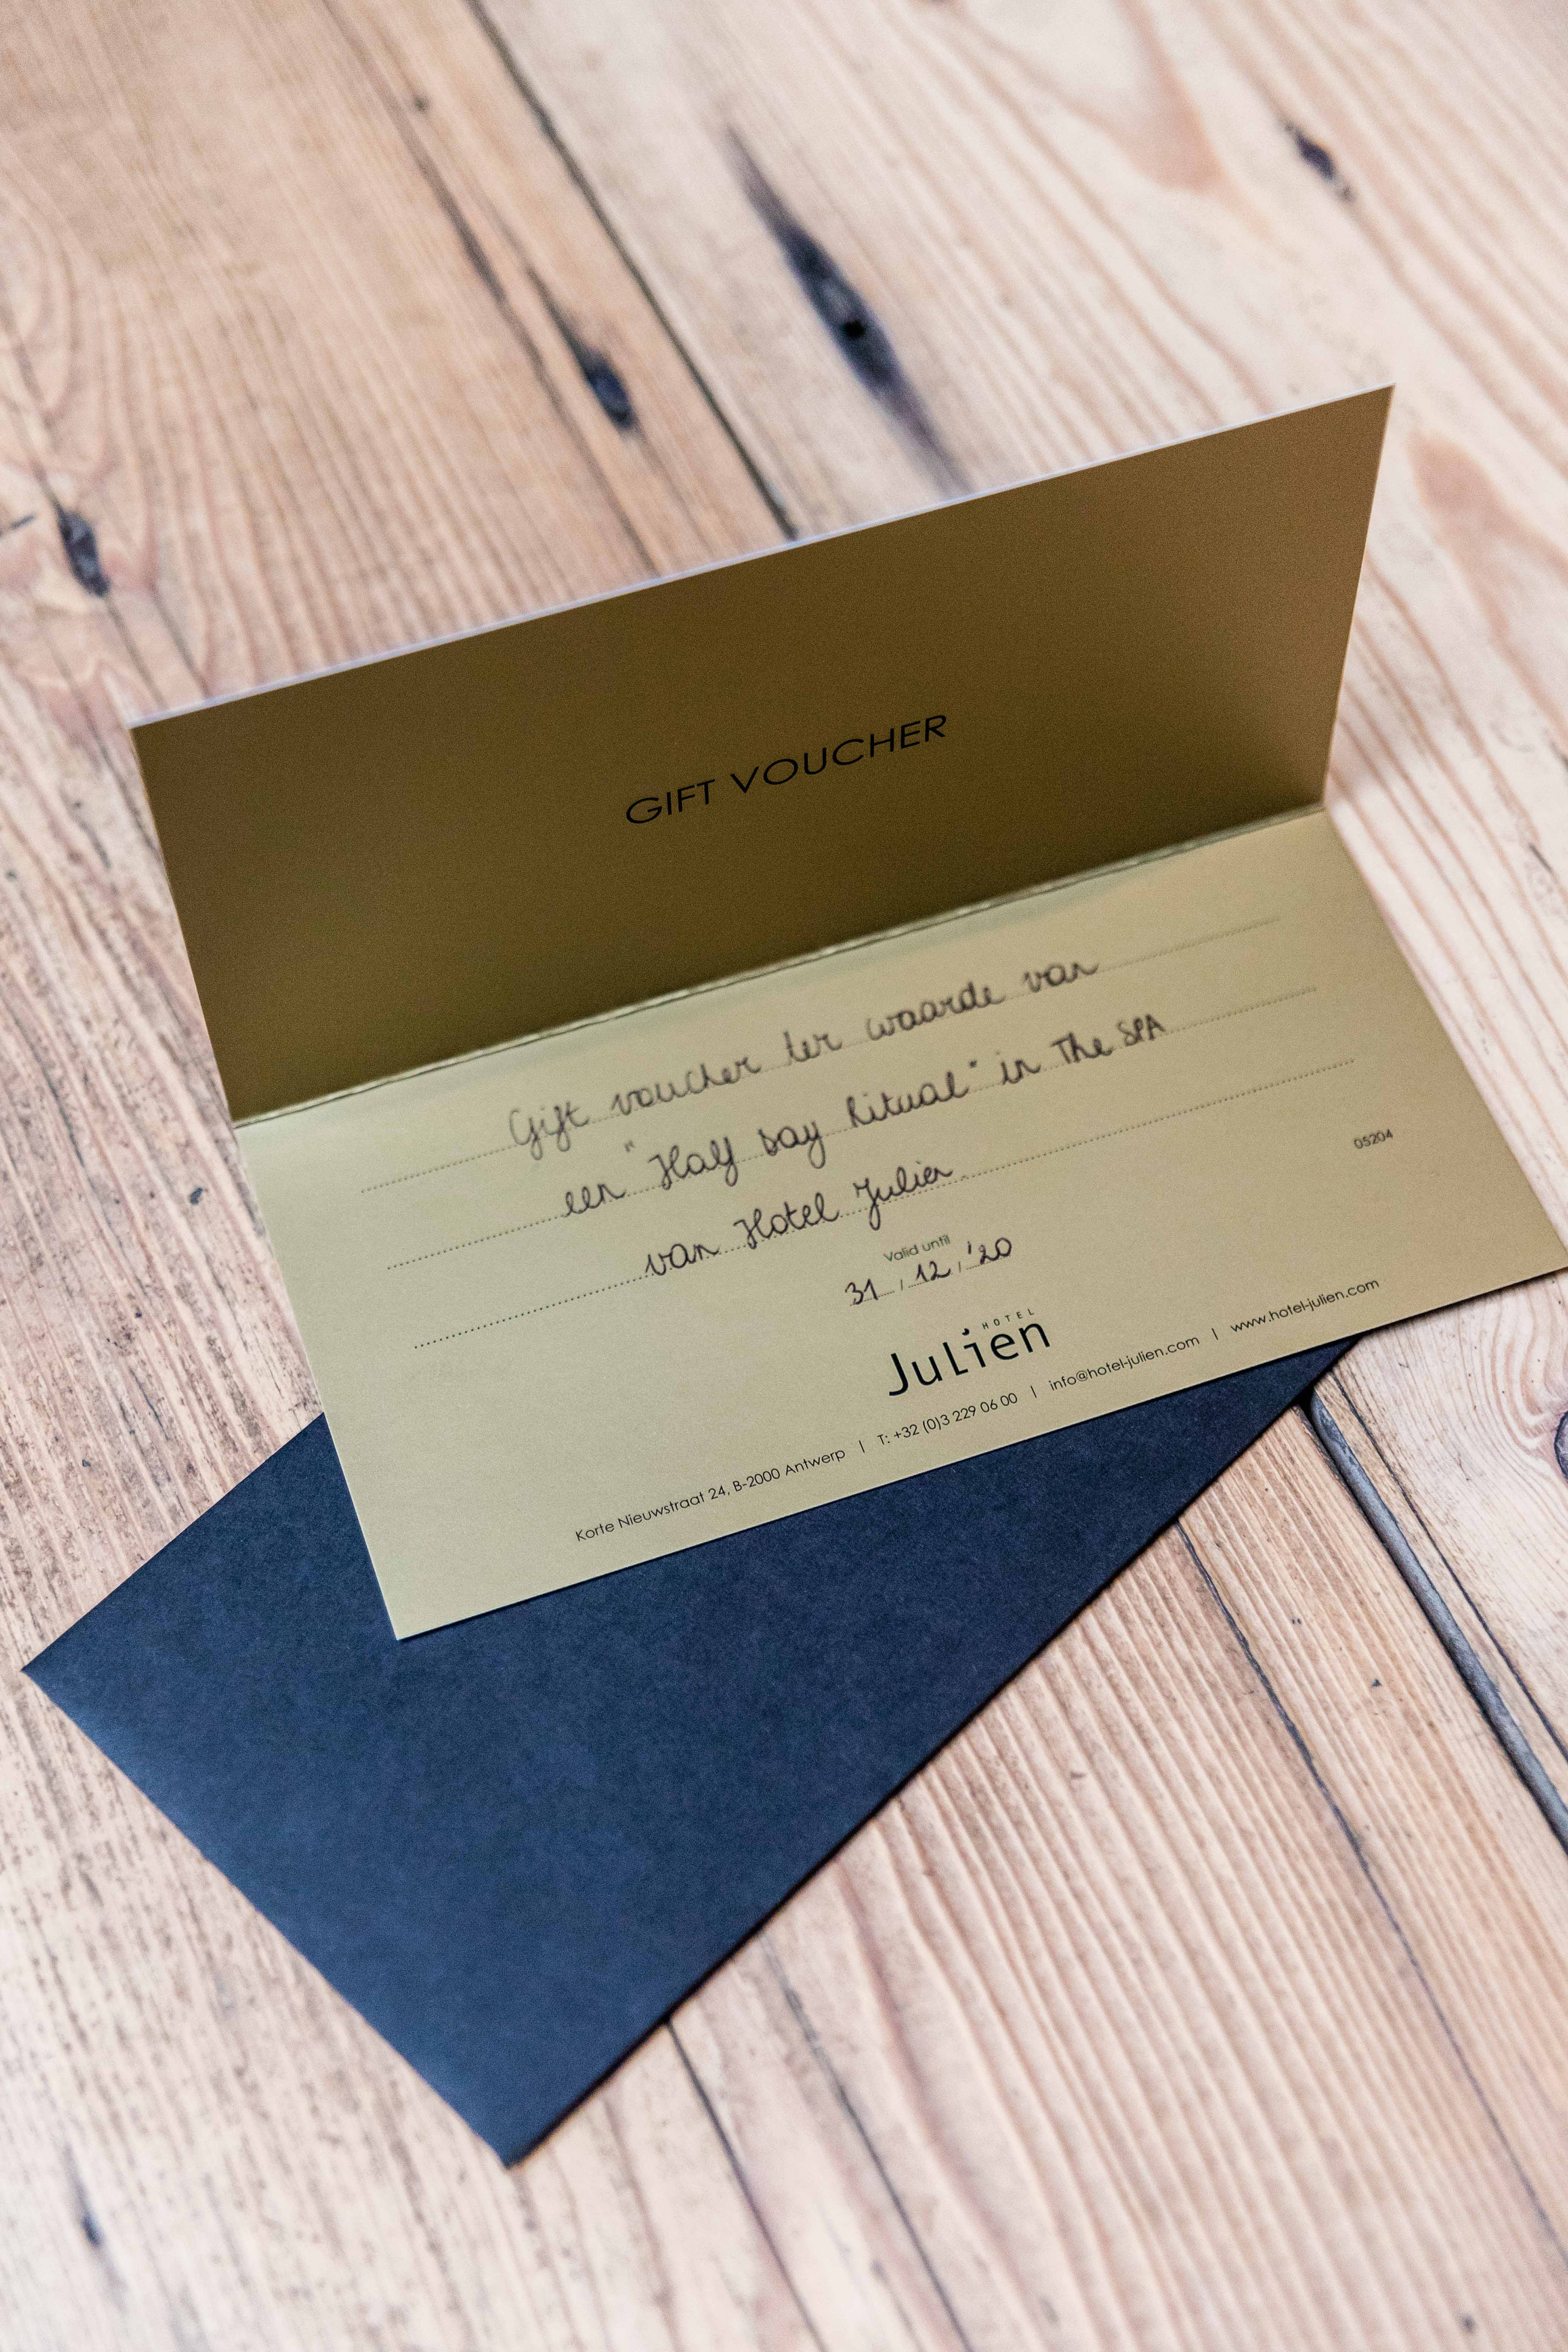 GIFT VOUCHER
Gift voucher ter waarde van
een "Half Day Ritual" in The SPA
van Hotel Julien.
05204
Valid until
31 / 12 / '20
HOTEL
Julien
Korte Nieuwstraat 24, B-2000 Antwerp | T: +32 (0)3 229 06 00 | info@hotel-julien.com | www.hotel-julien.com